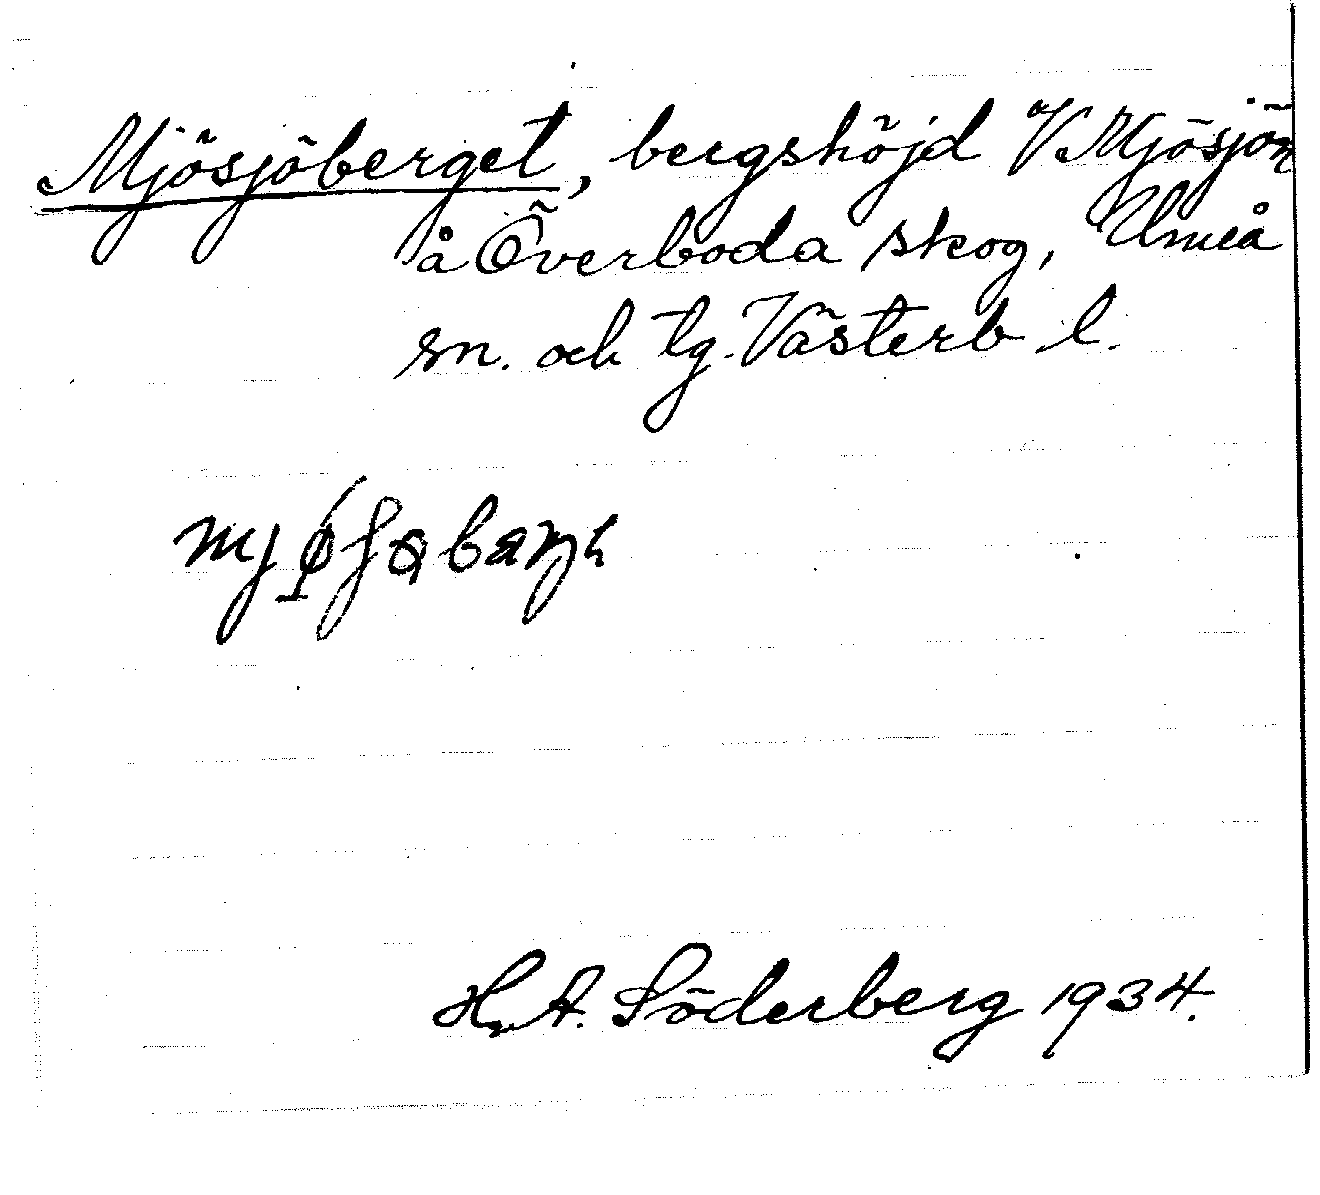 Mjösjöberget, bergshöjd V Mjösjön
å Överboda skog, Umeå
sn. och tg. Västerb. l.
H. A. Söderberg 1934.